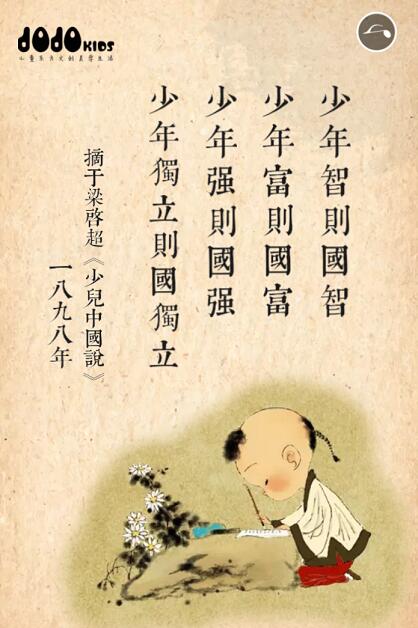 dodo KIDS
少年智則國智
少年富則國富
少年强則國强
少年獨立則國獨立
摘于梁啓超《少兒中國說》
一八九八年